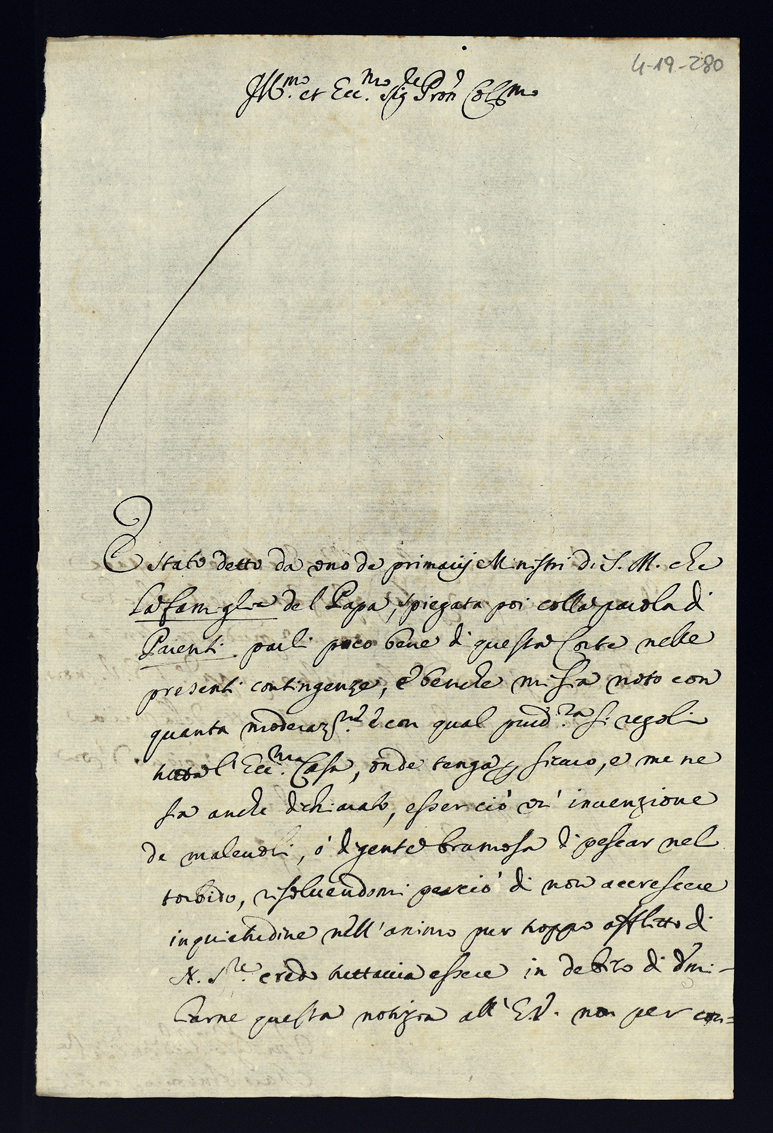 4-19-280
Ill.mo et Ecc.mo Sig.re Pron Col.mo
È stato detto da uno de primarij Ministri di S. M. che
la famiglia del Papa, spiegata poi colla parola di
Parenti parli poco bene di questa Corte nelle
presenti contingenze, e benche mi sia noto con
quanta moderaz.ne è con qual prud.za si regoli
tutta l'Ecc.ma Casa, onde tenga p sicuro, e me ne
sia anche dichiarato, esser ciò un' invenzione
de malevoli, ò di gente bramosa di pescar nel
torbido, risolvendomi perciò di non accrescere
inquietudine nell'animo pur troppo afflitto di
N. S.re credo tuttavia essere in debito di
questa notizia all' E.V. non per con=